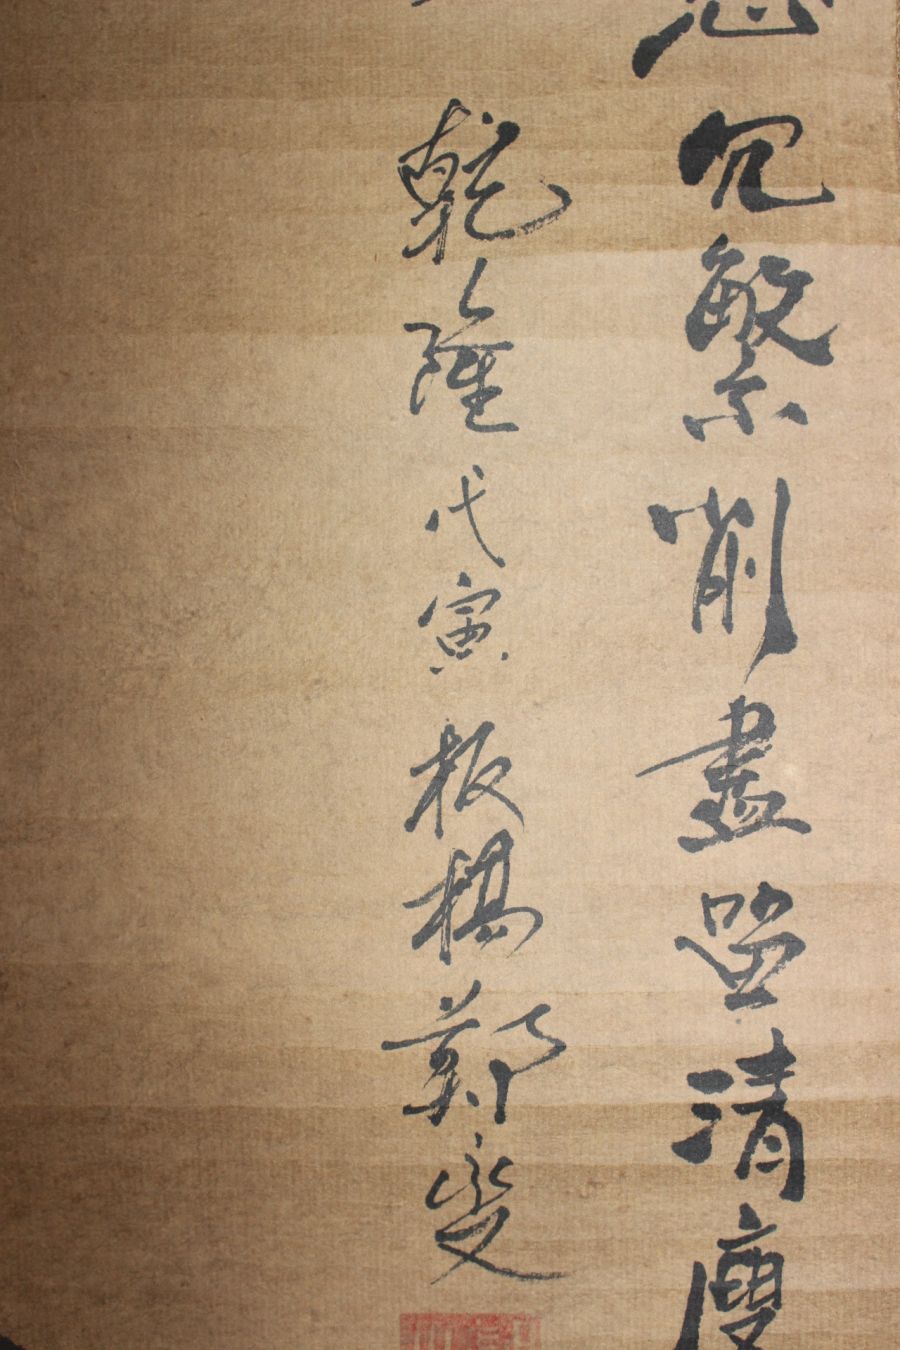 冗繁削盡留清瘦
乾隆戊寅板橋鄭燮